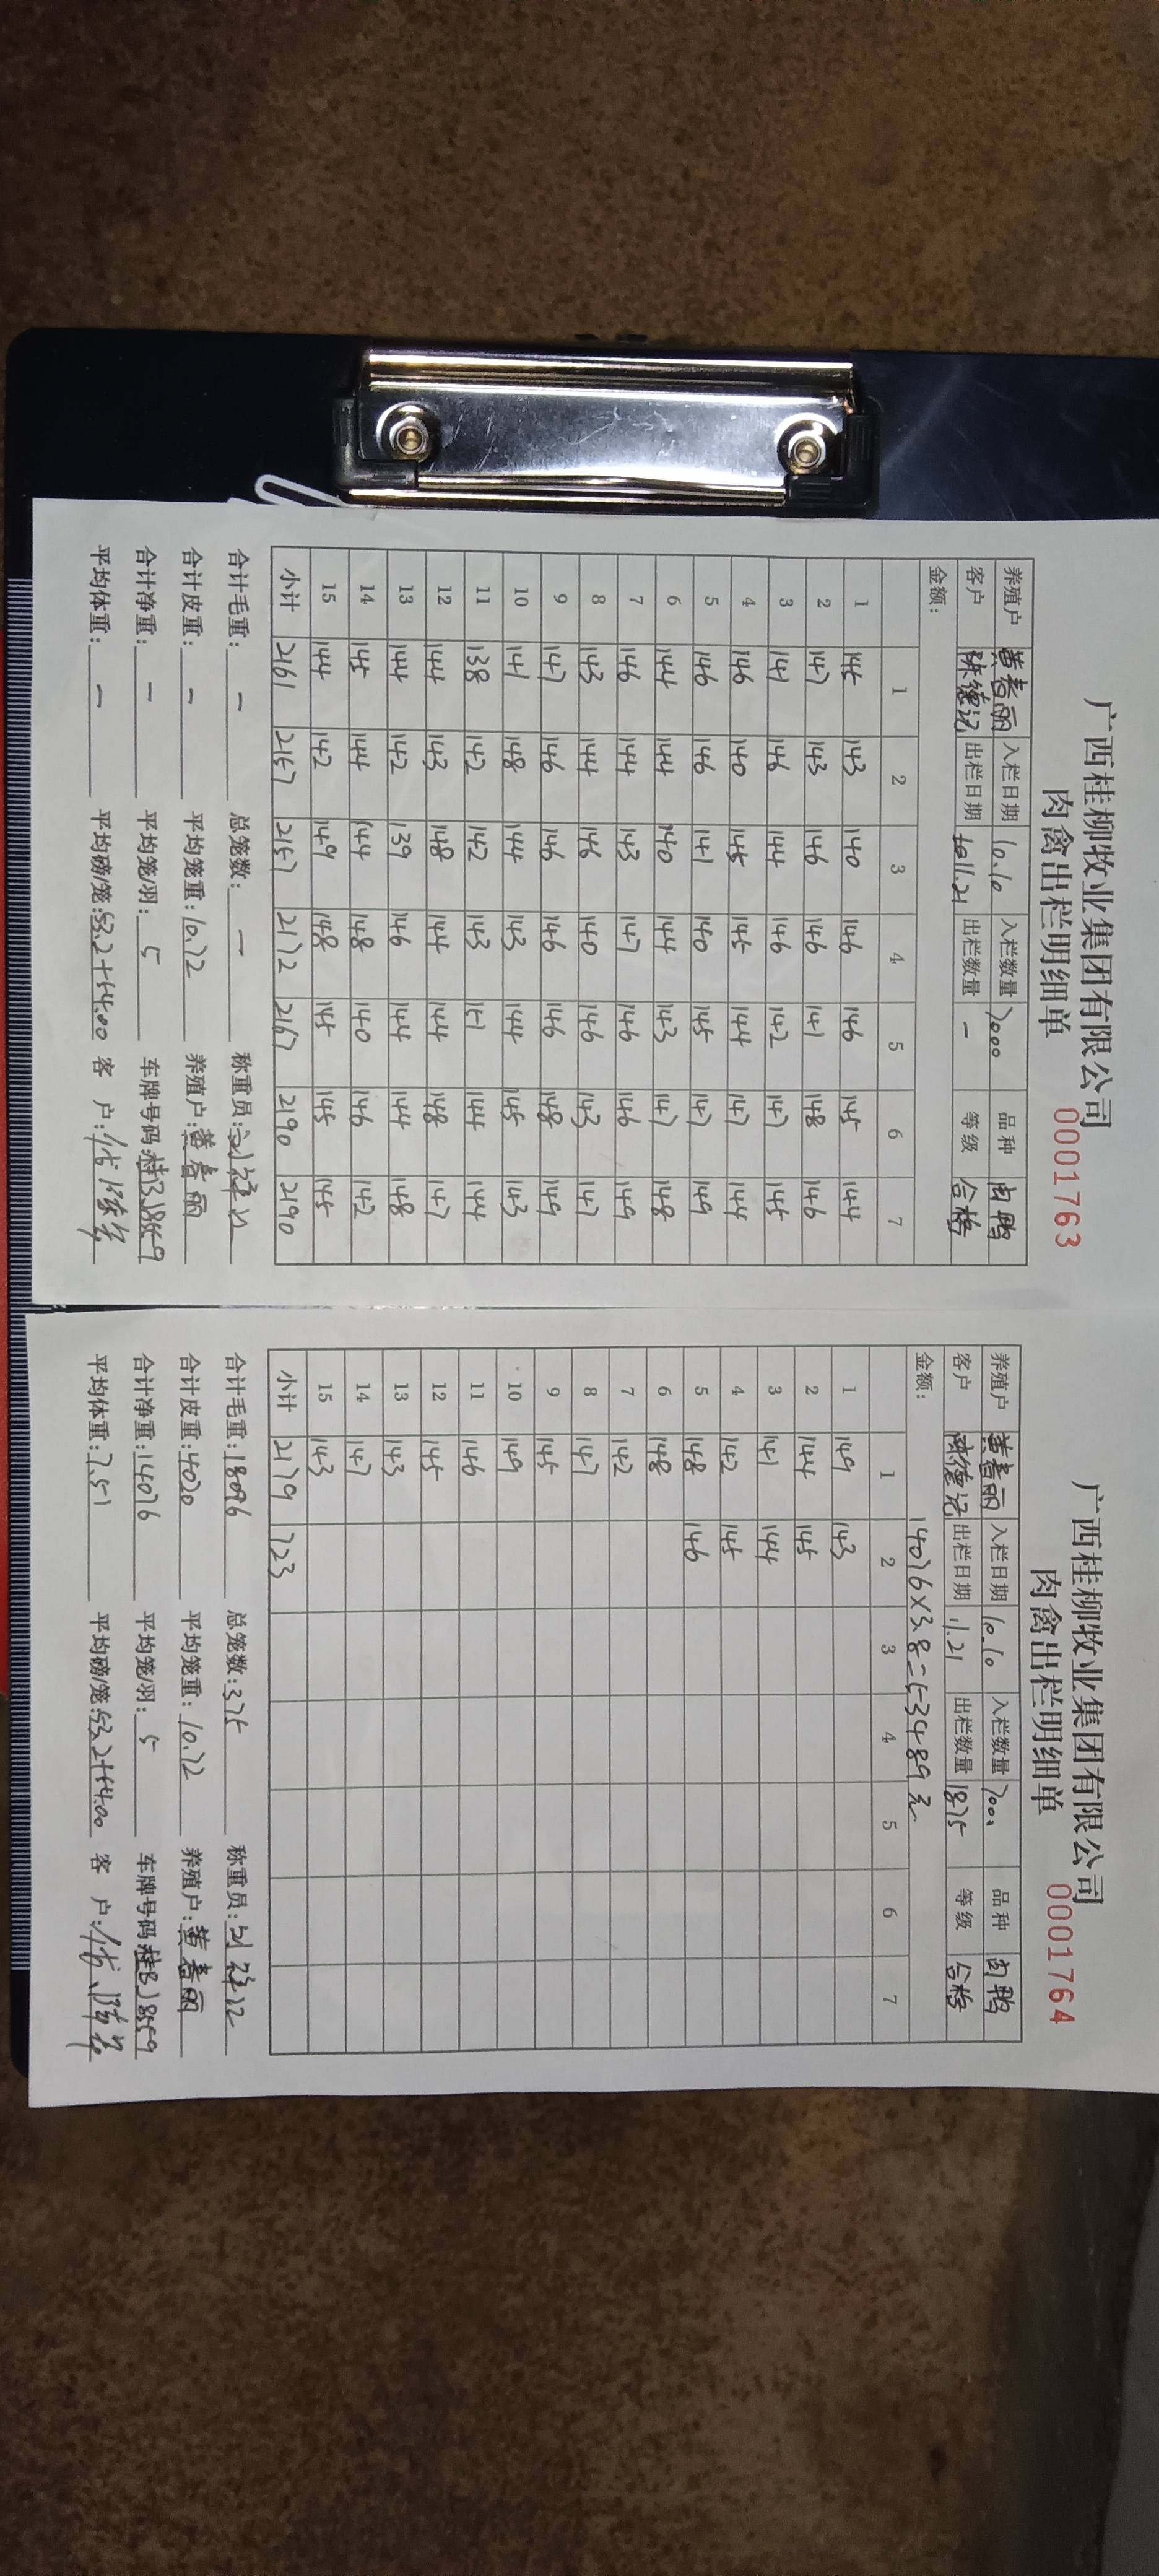 广西桂柳牧业集团有限公司
肉禽出栏明细单 0001763
养殖户 黄春丽 入栏日期 10.10 入栏数量 7000 品种 白鸭
客户 陈德记 出栏日期 11.21 出栏数量 — 等级 合格
金额：
1 2 3 4 5 6 7
1 145 143 140 146 146 145 144
2 147 143 146 146 141 148 146
3 141 146 144 146 142 147 145
4 146 140 145 145 144 147 144
5 146 146 141 140 145 147 149
6 144 144 140 144 143 147 148
7 146 144 143 147 146 146 149
8 143 144 146 140 146 143 147
9 147 146 146 146 146 148 149
10 141 148 144 143 144 145 143
11 138 142 142 143 141 144 144
12 144 143 148 144 144 148 147
13 144 142 139 146 144 144 148
14 145 144 144 148 140 146 142
15 144 142 149 148 145 145 145
小计 2161 2157 2157 2172 2167 2190 2190
合计毛重：— 总笼数：— 称重员：
合计皮重：— 平均笼重：10.72 养殖户：黄春丽
合计净重：— 平均笼/羽：5 车牌号码：桂BJ8559
平均体重：— 平均磅/笼：53.2+54.00 客 户：
广西桂柳牧业集团有限公司
肉禽出栏明细单 0001764
养殖户 黄春丽 入栏日期 10.10 入栏数量 7000 品种 白鸭
客户 陈德记 出栏日期 11.21 出栏数量 1875 等级 合格
金额： 14076×3.8=53489元
1 2 3 4 5 6 7
1 149 143
2 144 145
3 141 144
4 142 145
5 148 146
6 148
7 142
8 147
9 145
10 149
11 146
12 145
13 143
14 147
15 143
小计 2179 723
合计毛重：18096 总笼数：375 称重员：
合计皮重：4020 平均笼重：10.72 养殖户：黄春丽
合计净重：14076 平均笼/羽：5 车牌号码：桂BJ8559
平均体重：7.51 平均磅/笼：53.2+54.00 客 户：